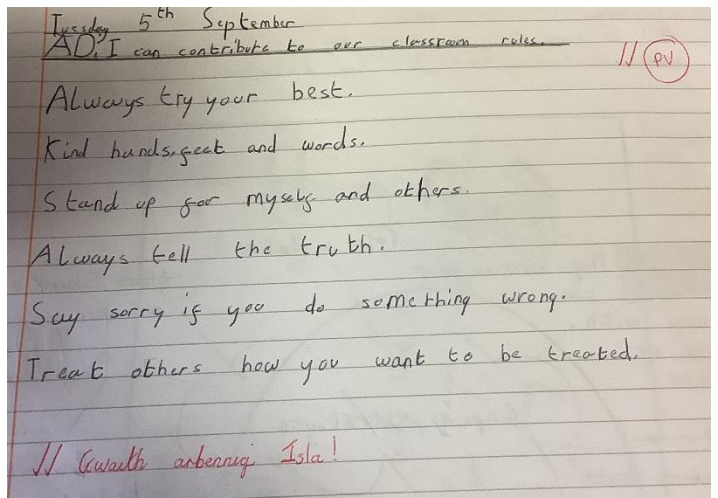 Tuesday 5th September
AD: I can contribute to our classroom rules.
// PV
Always try your best.
Kind hands, feet and words.
Stand up for myself and others.
Always tell the truth.
Say sorry if you do something wrong.
Treat others how you want to be treated.
// Gwaith arbennig Isla!